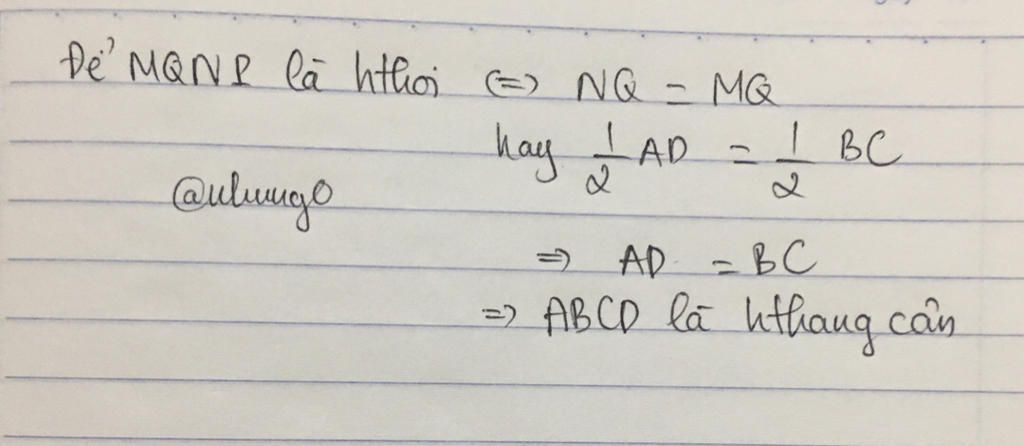 Để MQNP là hthoi <=> NQ = MQ
hay 1/2 AD = 1/2 BC
=> AD = BC
=> ABCD là hthang cân